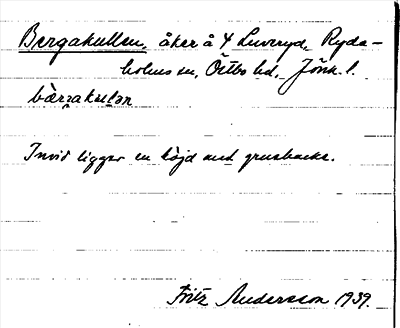 Bergakullen, åker å 4 Luvryd, Ryda-
holms sn, Östbo hd, Jönk. l.
bærgakulən
Invid ligger en höjd med grusbacke.
Fritz Andersson 1939.